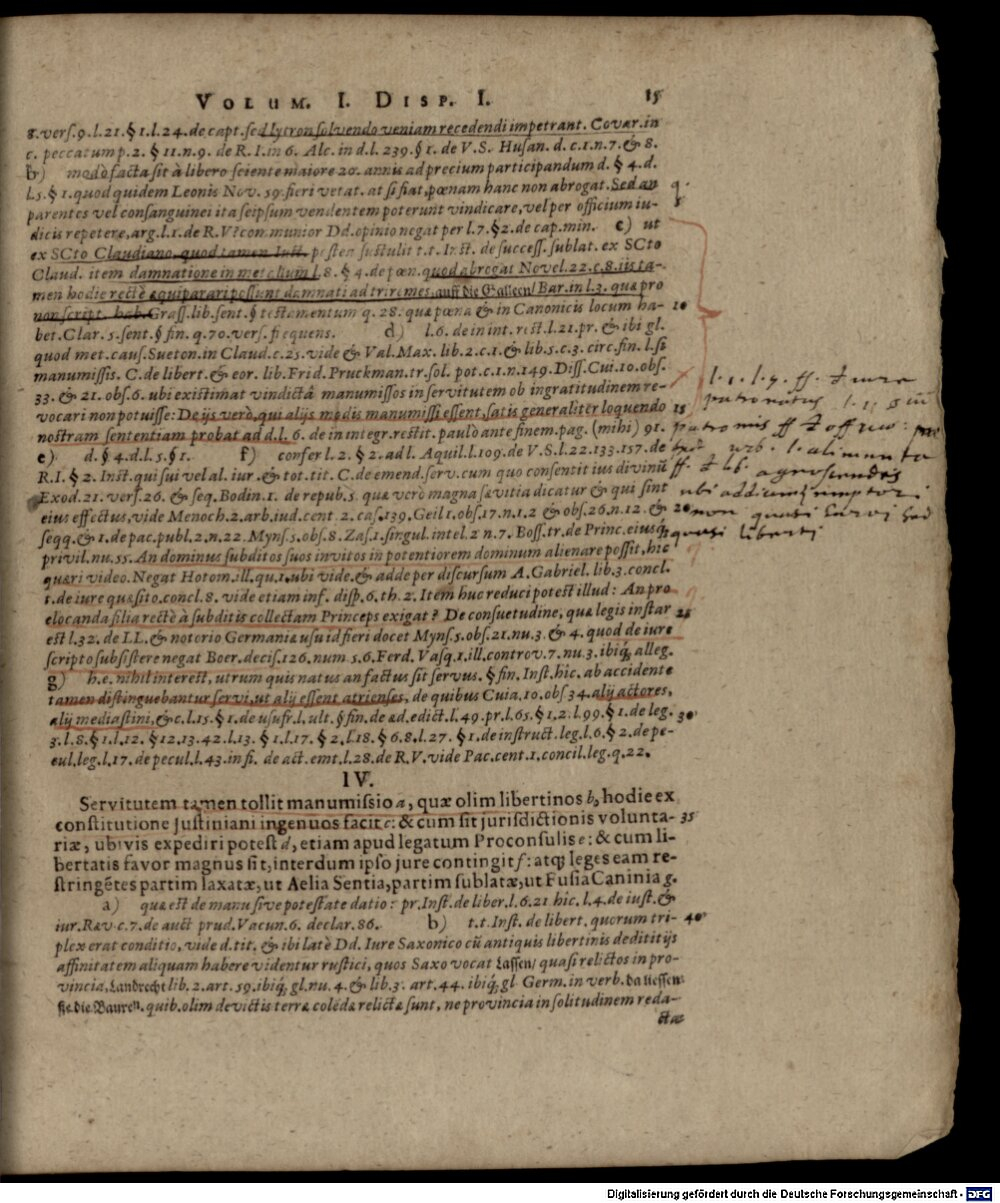 VOLUM. I. DISP. I. 15
8. vers. 9. l. 21. § 1. l. 24. de capt. sed lytron solvendo veniam recedendi impetrant. Covar. in
c. peccatum p. 2. § 11. n. 9. de R. I. in 6. Alc. in d. l. 239. § 1. de V. S. Husan. d. c. 1. n. 7. & 8.
b) modò facta sit à libero sciente maiore 20. annis ad precium participandum d. § 4. d.
l. 5. § 1. quod quidem Leonis Nov. 59. fieri vetat. at si fiat, pœnam hanc non abrogat. Sed an
parentes vel consanguinei ita seipsum vendentem poterunt vindicare, vel per officium iu- 5
dicis repetere, arg. l. 1. de R. V? communior Dd. opinio negat per l. 7. § 2. de cap. min. c) ut
ex SCto Claudiano quod tamen Iust. postea sustulit t. t. Inst. de success. sublat. ex SCto
Claud. item damnatione in metallum l. 8. § 4. de pœn. quod abrogat Novel. 22. c. 8. iis ta-
men hodie rectè æquiparari possunt damnati ad triremes, auff die Galleen/ Bar. in l. 3. quæ pro
non script. hab. Grass. lib. sent. § testamentum q. 28. quæ pœna & in Canonicis locum ha- 10
bet. Clar. 5. sent. § fin. q. 70. vers. frequens. d) l. 6. de in int. rest. l. 21. pr. & ibi gl.
quod met. caus. Sueton. in Claud. c. 25. vide & Val. Max. lib. 2. c. 1. & lib. 5. c. 3. circ. fin. l. si
manumissis. C. de libert. & eor. lib. Frid. Pruckman. tr. sol. pot. c. 1. n. 149. Diss. Cui. 10. obs.
33. & 21. obs. 6. ubi existimat vindictâ manumissos in servitutem ob ingratitudinem re-
vocari non potuisse: De ijs verò, qui alijs modis manumissi essent, satis generaliter loquendo 15
nostram sententiam probat ad d. l. 6. de in integr. restit. paulo ante finem. pag. (mihi) 91.
e) d. § 4. d. l. 5. § 1. f) confer l. 2. § 2. ad l. Aquil. l. 109. de V. S. l. 22. 133. 157. de
R. I. § 2. Inst. qui sui vel al. iur. & tot. tit. C. de emend. serv. cum quo consentit ius divinū
Exod. 21. vers. 26. & seq. Bodin. 1. de repub. 5. quæ verò magna sævitia dicatur & qui sint
eius effectus, vide Menoch. 2. arb. iud. cent. 2. cas. 139. Geil 1. obs. 17. n. 1. 2 & obs. 26. n. 12. & 20
seqq. & 1. de pac. publ. 2. n. 22. Myns. 5. obs. 8. Zas. 1. singul. intel. 2 n. 7. Boss. tr. de Princ. eiusq́
privil. nu. 55. An dominus subditos suos invitos in potentiorem dominum alienare possit, hic
quæri video. Negat Hotom. ill. qu. 1. ubi vide. & adde per discursum A. Gabriel. lib. 3. concl.
1. de iure quæsito. concl. 8. vide etiam inf. disp. 6. th. 2. Item huc reduci potest illud: An pro
elocanda filia rectè à subditis collectam Princeps exigat? De consuetudine, quæ legis instar 25
est l. 32. de LL. & notorio Germaniæ usu id fieri docet Myns. 5. obs. 21. nu. 3. & 4. quod de iure
scripto subsistere negat Boer. decis. 126. num 5. 6. Ferd. Vasq. 1. ill. controv. 7. nu. 3. ibiq́, alleg.
g) h. e. nihil interest, utrum quis natus an factus sit servus. § fin. Inst. hic. ab accidente
tamen distinguebantur servi, ut alij essent atrienses, de quibus Cuia. 10. obs 34. alij actores,
alij mediastini, & c. l. 15. § 1. de usufr. l. ult. § fin. de æd. edict. l. 49. pr. l. 65. § 1. 2. l. 99. § 1. de leg. 30
3. l. 8. § 1. l. 12. § 12. 13. 42. l. 13. § 1. l. 17. § 2. l. 18. § 6. 8. l. 27. § 1. de instruct. leg. l. 6. § 2. de pe-
cul. leg. l. 17. de pecul. l. 43. in fi. de act. emt. l. 28. de R. V. vide Pac. cent. 1. concil. leg. q. 22.
IV.
Servitutem tamen tollit manumissio a, quæ olim libertinos b, hodie ex
constitutione Justiniani ingenuos facit c: & cum sit jurisdictionis volunta- 35
riæ, ubivis expediri potest d, etiam apud legatum Proconsulis e: & cum li-
bertatis favor magnus sit, interdum ipso jure contingit f: atq; leges eam re-
stringẽtes partim laxatæ, ut Aelia Sentia, partim sublatæ, ut Fusia Caninia g.
a) quæ est de manu sive potestate datio: pr. Inst. de liber. l. 6. 21 hic. l. 4. de iust. &
iur. Ræv. c. 7. de auct prud. Vacun. 6. declar. 86. b) t. t. Inst. de libert. quorum tri- 40
plex erat conditio, vide d. tit. & ibi latè Dd. Iure Saxonico cū antiquis libertinis dedititijs
affinitatem aliquam habere videntur rustici, quos Saxo vocat Lassen/ quasi relictos in pro-
vincia, Landrecht lib. 2. art. 59. ibiq́; gl. nu. 4. & lib. 3. art. 44. ibiq́; gl Germ. in verb. da liessen
sie die Bauren. quib. olim devictis terræ colēdæ relictæ sunt, ne provincia in solitudinem reda-
ctæ
l. 1. l. 7. ff. d iure
patronatus l.
patronus ff d
urb. l. alimenta
ff. d lib. agnoscendis
ubi addiciunt emptori
non quasi servi sed
quasi liberti
Digitalisierung gefördert durch die Deutsche Forschungsgemeinschaft - DFG